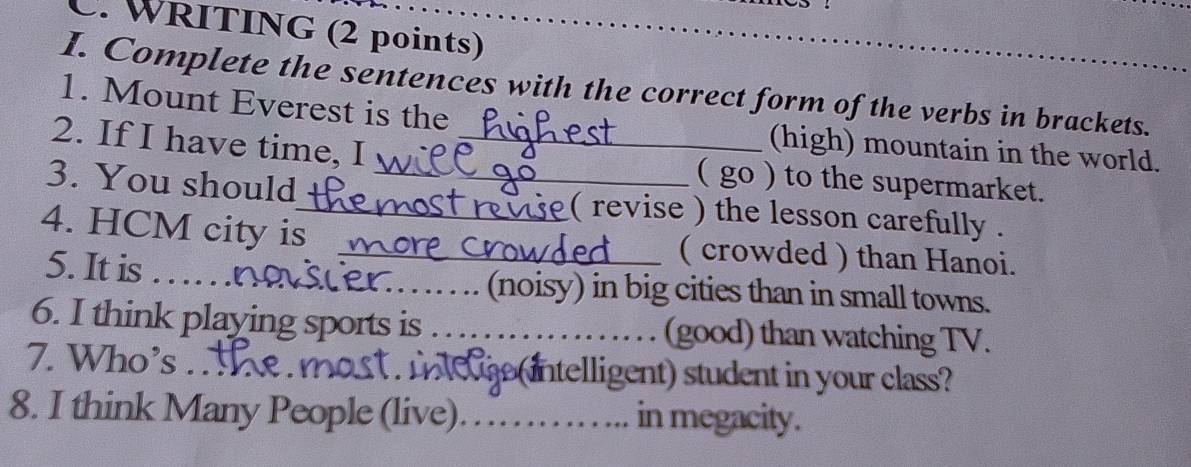 C. WRITING (2 points)
I. Complete the sentences with the correct form of the verbs in brackets.
1. Mount Everest is the highest (high) mountain in the world.
2. If I have time, I will go ( go ) to the supermarket.
3. You should themost revise ( revise ) the lesson carefully .
4. HCM city is more crowded ( crowded ) than Hanoi.
5. It is ......noisier......... (noisy) in big cities than in small towns.
6. I think playing sports is .................... (good) than watching TV.
7. Who's ...the.most.intelige(intelligent) student in your class?
8. I think Many People (live)................ in megacity.